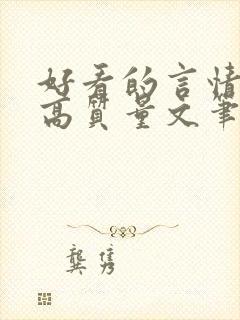 好看的言情
高质量文笔
龚隽